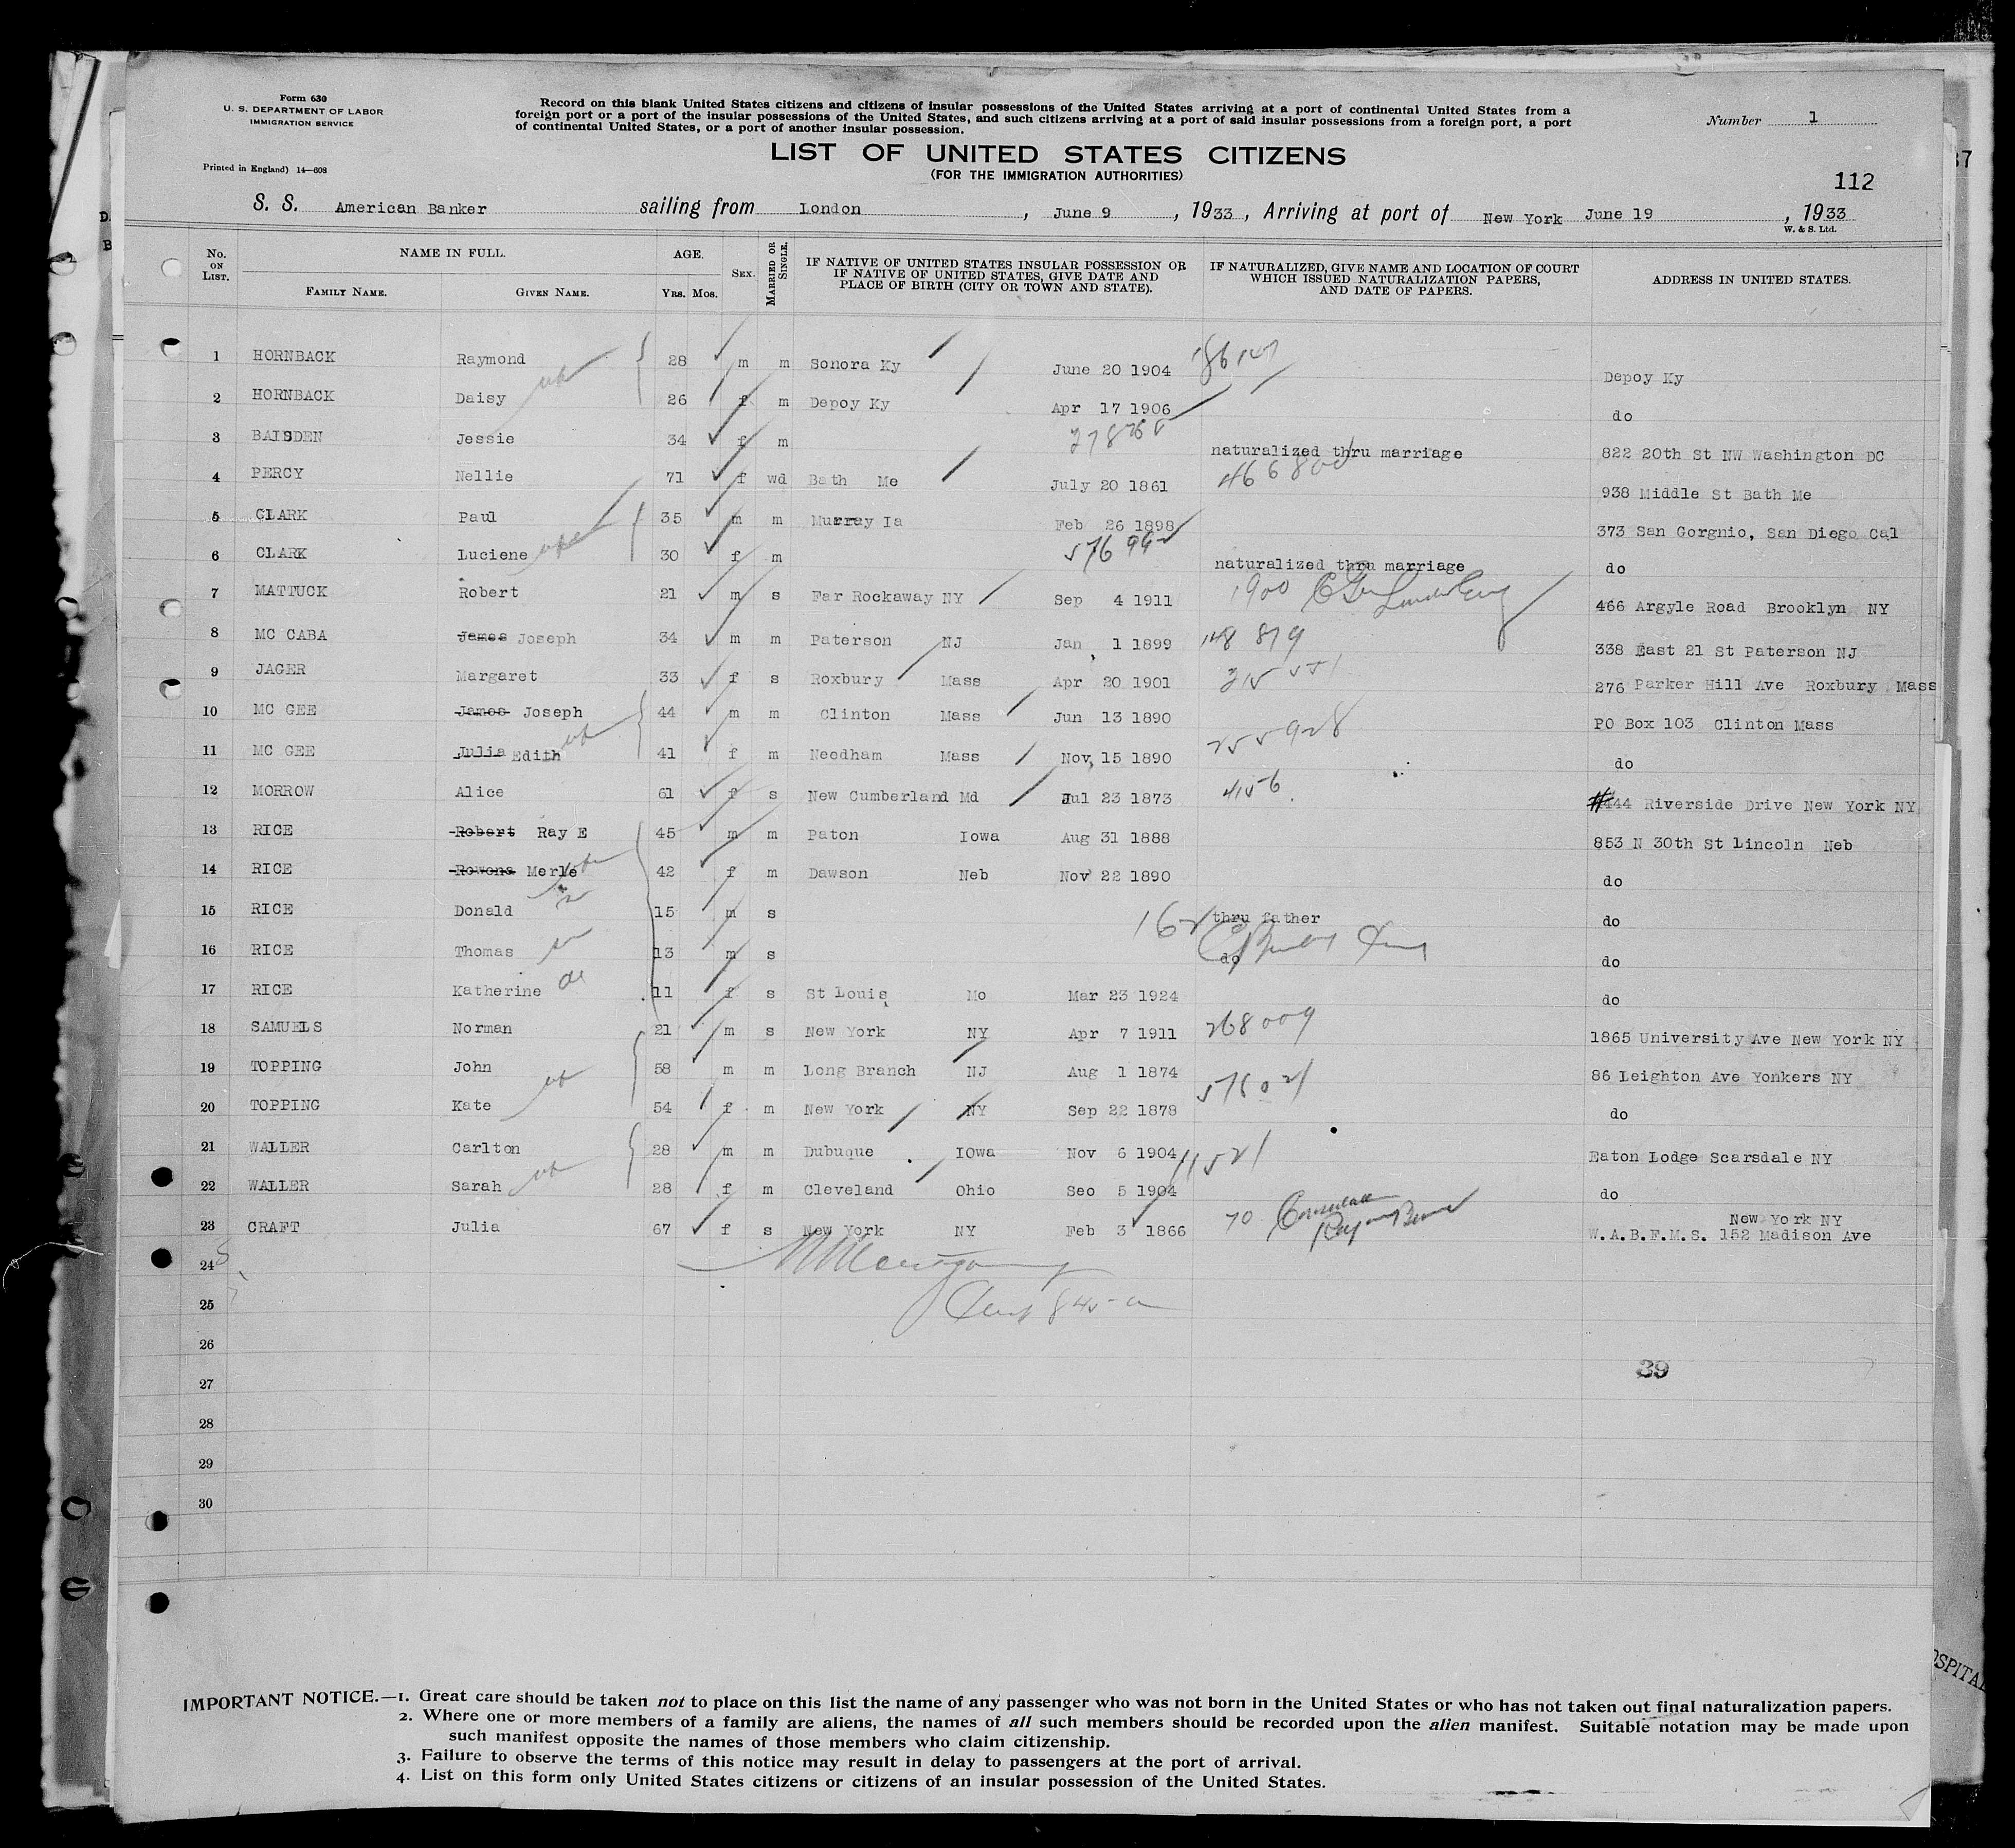 Form 630
U. S. DEPARTMENT OF LABOR
IMMIGRATION SERVICE
Printed in England) 14—608
Record on this blank United States citizens and citizens of insular possessions of the United States arriving at a port of continental United States from a
foreign port or a port of the insular possessions of the United States, and such citizens arriving at a port of said insular possessions from a foreign port, a port
of continental United States, or a port of another insular possession.
Number 1
LIST OF UNITED STATES CITIZENS
(FOR THE IMMIGRATION AUTHORITIES)
112
S. S. American Banker sailing from London, June 9, 1933, Arriving at port of New York June 19, 1933
W. & S. Ltd.
No. ON LIST. NAME IN FULL. FAMILY NAME. GIVEN NAME. AGE. YRS. MOS. SEX. MARRIED OR SINGLE. IF NATIVE OF UNITED STATES INSULAR POSSESSION OR IF NATIVE OF UNITED STATES, GIVE DATE AND PLACE OF BIRTH (CITY OR TOWN AND STATE). IF NATURALIZED, GIVE NAME AND LOCATION OF COURT WHICH ISSUED NATURALIZATION PAPERS, AND DATE OF PAPERS. ADDRESS IN UNITED STATES.
1 HORNBACK Raymond 28 m m Sonora Ky June 20 1904 186147 Depoy Ky
2 HORNBACK Daisy 26 f m Depoy Ky Apr 17 1906 do
3 BAISDEN Jessie 34 f m 278768 naturalized thru marriage 822 20th St NW Washington DC
4 PERCY Nellie 71 f wd Bath Me July 20 1861 466800 938 Middle St Bath Me
5 CLARK Paul 35 m m Murray Ia Feb 26 1898 373 San Gorgnio, San Diego Cal
6 CLARK Luciene 30 f m 576992 naturalized thru marriage do
7 MATTUCK Robert 21 m s Far Rockaway NY Sep 4 1911 1900 466 Argyle Road Brooklyn NY
8 MC CABA James Joseph 34 m m Paterson NJ Jan 1 1899 148 879 338 East 21 St Paterson NJ
9 JAGER Margaret 33 f s Roxbury Mass Apr 20 1901 276 Parker Hill Ave Roxbury Mass
10 MC GEE James Joseph 44 m m Clinton Mass Jun 13 1890 PO Box 103 Clinton Mass
11 MC GEE Julia Edith 41 f m Needham Mass Nov, 15 1890 255928 do
12 MORROW Alice 61 f s New Cumberland Md Jul 23 1873 4156 444 Riverside Drive New York NY
13 RICE Robert Ray E 45 m m Paton Iowa Aug 31 1888 853 N 30th St Lincoln Neb
14 RICE Rowena Merle 42 f m Dawson Neb Nov 22 1890 do
15 RICE Donald 15 m s 162 thru father do
16 RICE Thomas 13 m s do do
17 RICE Katherine 11 f s St Louis Mo Mar 23 1924 do
18 SAMUELS Norman 21 m s New York NY Apr 7 1911 268009 1865 University Ave New York NY
19 TOPPING John 58 m m Long Branch NJ Aug 1 1874 86 Leighton Ave Yonkers NY
20 TOPPING Kate 54 f m New York NY Sep 22 1878 do
21 WALLER Carlton 28 m m Dubuque Iowa Nov 6 1904 11521 Eaton Lodge Scarsdale NY
22 WALLER Sarah 28 f m Cleveland Ohio Seo 5 1904 do
23 CRAFT Julia 67 f s New York NY Feb 3 1866 70 New York NY
W.A.B.F.M.S. 152 Madison Ave
24
25
26
27
28
29
30
39
IMPORTANT NOTICE.—1. Great care should be taken not to place on this list the name of any passenger who was not born in the United States or who has not taken out final naturalization papers.
2. Where one or more members of a family are aliens, the names of all such members should be recorded upon the alien manifest. Suitable notation may be made upon
such manifest opposite the names of those members who claim citizenship.
3. Failure to observe the terms of this notice may result in delay to passengers at the port of arrival.
4. List on this form only United States citizens or citizens of an insular possession of the United States.